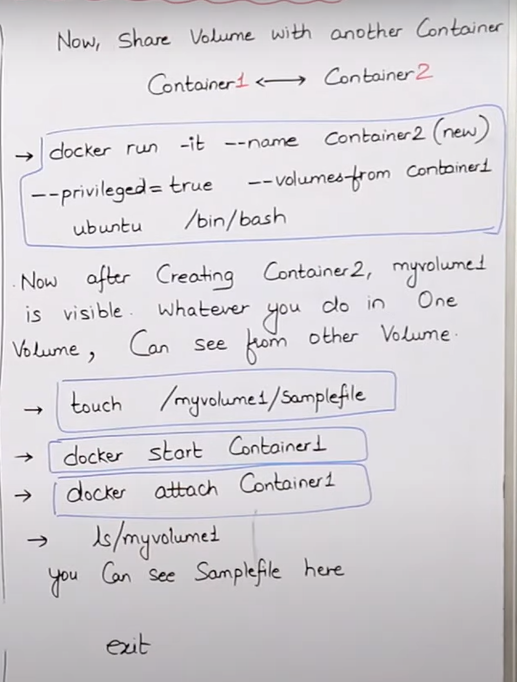 Now, Share Volume with another Container
Container1 ⟷ Container2
→ docker run -it --name Container2 (new)
--privileged=true --volumes-from container1
ubuntu /bin/bash
.Now after Creating Container2, myvolume1
is visible. Whatever you do in One
Volume, Can see from other Volume.
→ touch /myvolume1/Samplefile
→ docker start Container1
→ docker attach Container1
→ ls/myvolume1
you Can see Samplefile here
exit